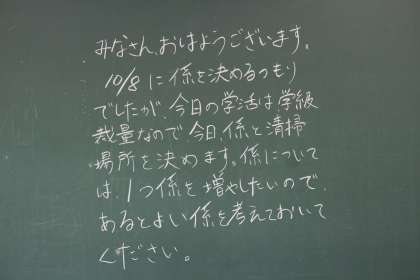 みなさん、おはようございます。
10/8に係を決めるつもり
でしたが、今日の学活は学級
裁量なので、今日、係と清掃
場所を決めます。係について
は、1つ係を増やしたいので、
あるとよい係を考えておいて
ください。